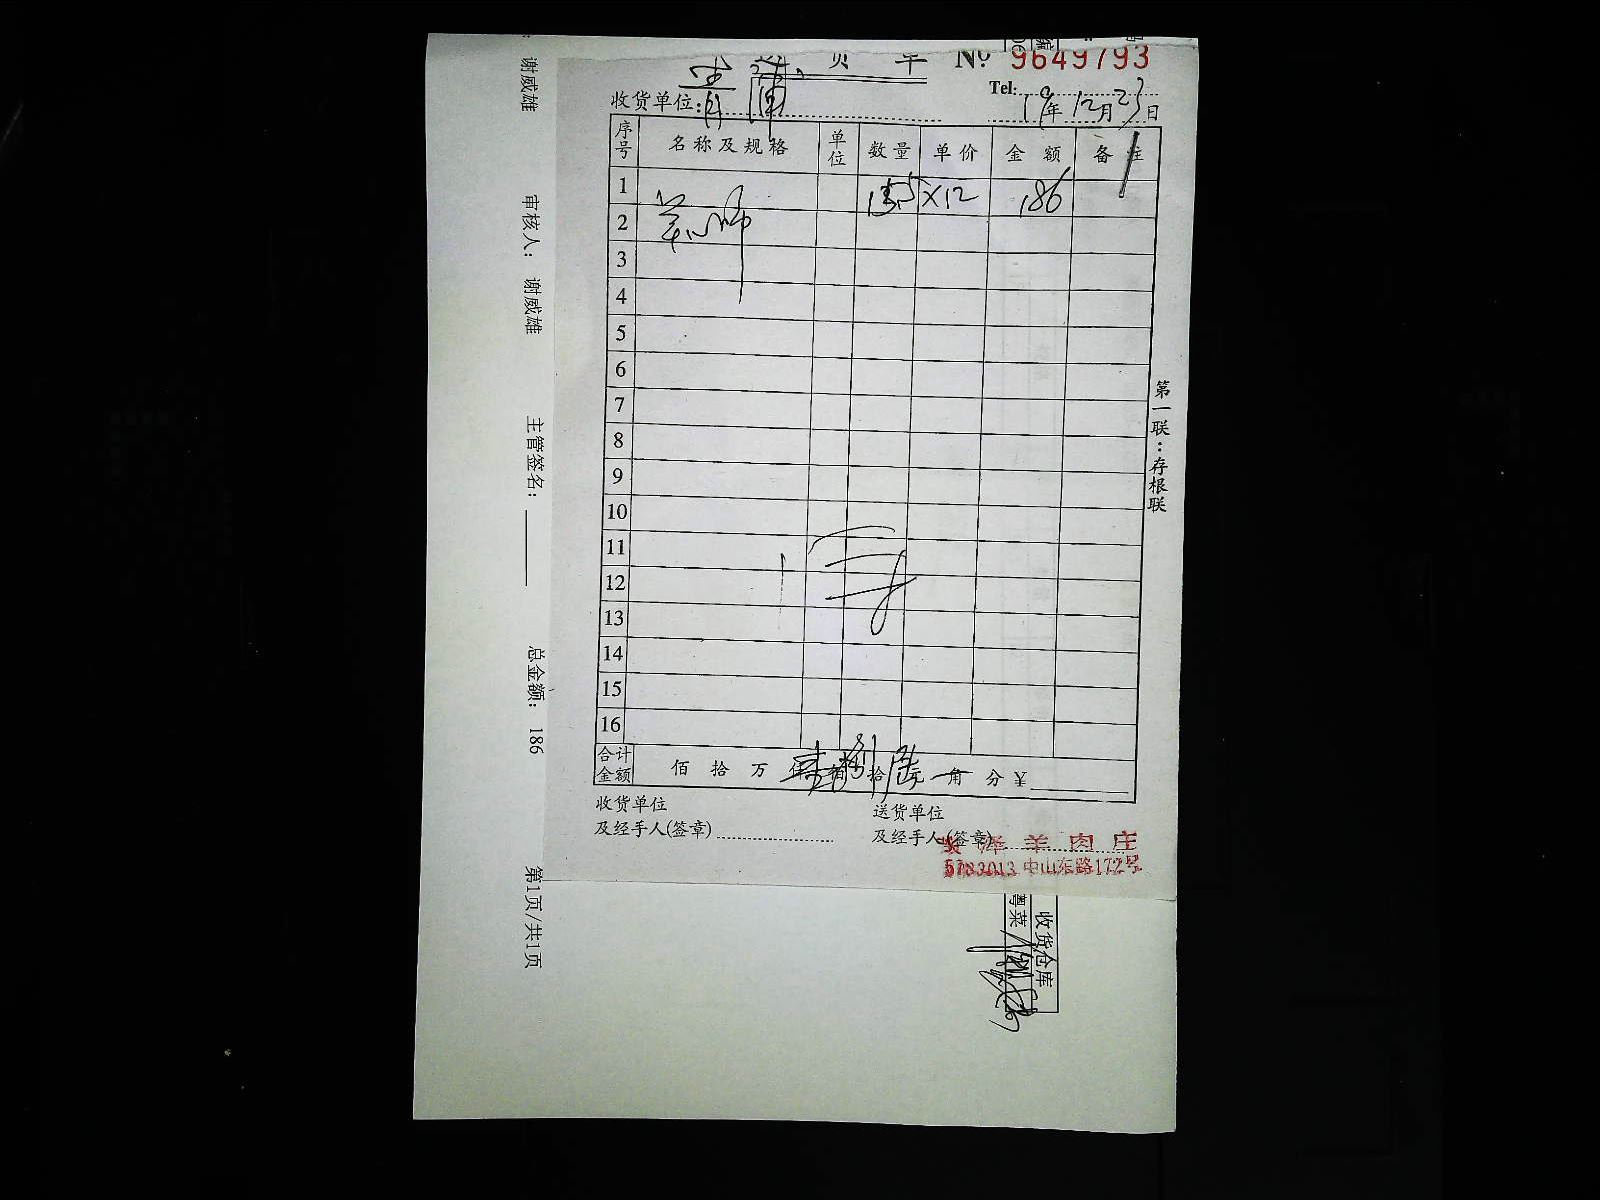 № 9649793
Tel:
收货单位:
19年12月23日
序号 名称及规格 单位 数量 单价 金额 备注
1 15.5 ×12 186
2
3
4
5
6
7
8
9
10
11
12
13
14
15
16
合计金额 佰 拾 万 仟 壹佰 捌拾 陆元 角 分 ¥
收货单位
及经手人(签章)
送货单位
及经手人(签章)
泽羊肉庄
5783013 中山东路172号
第一联:存根联
谢威雄
审核人: 谢威雄
主管签名:
总金额: 186
第1页/共1页
收货仓库
粤菜